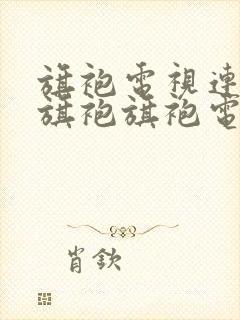 旗袍電視連
旗袍旗袍電
肖欽